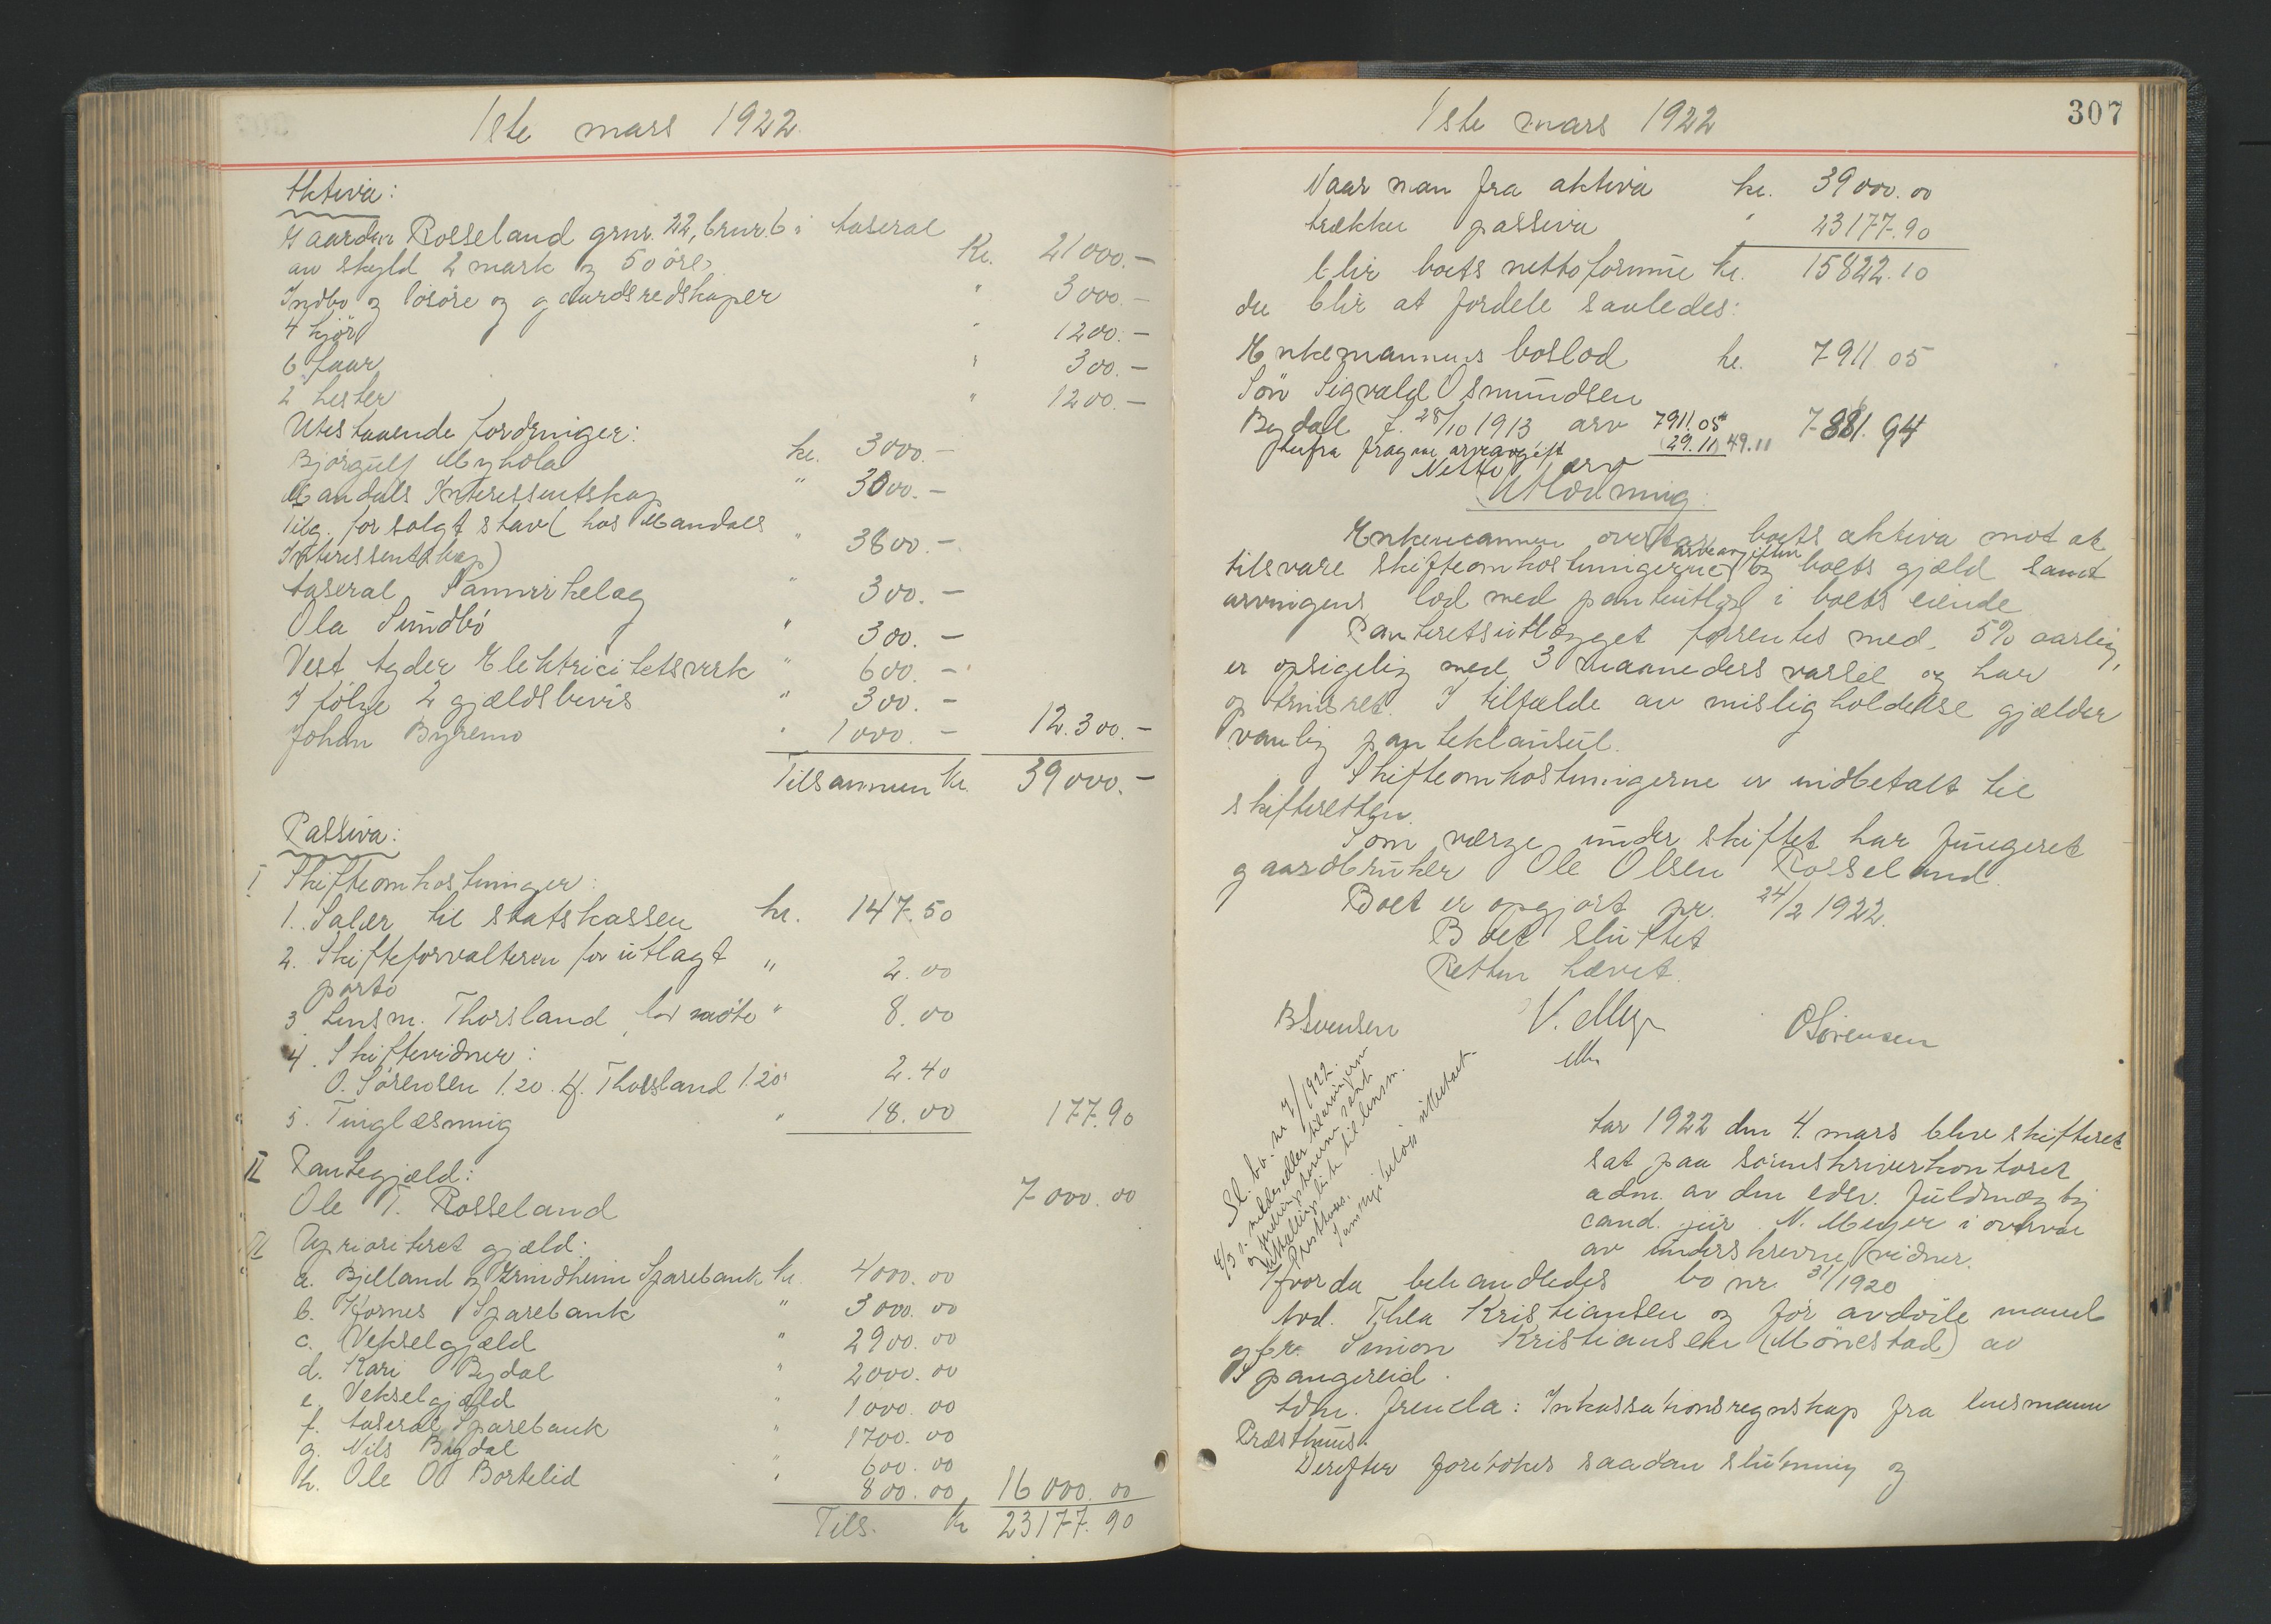 1ste mars 1922.
Aktiva:
Gaarden Rosseland grnr. 22, brnr. 6 i Aaseral
av skyld 2 mark og 50 öre Kr. 21000.-
Indbo og lösöre og gaardsredskaper " 3000.-
4 kjör " 1200.-
6 faar " 300.-
2 hester " 1200.-
Utestaaende fordringer:
Björgulf Myhola kr. 3000.-
Mandals Interessentskap " 3000.-
Tilg. for solgt stav (hos Mandals
Interessentskap) " 3800.-
Aaseral Samvirkelag " 300.-
Ola Sundbö " 300.-
Vest Agder Elektricitetsverk " 600.-
I fölge 2 gjældsbevis " 300.-
Johan Byremo " 1000.- 12.300.-
Tilsammen kr. 39000.-
Passiva:
I Skifteomkostninger:
1. Salær til statskassen kr. 147.50
2. Skifteforvalteren for utlagt " 2.00
porto
3 Lensm. Thorsland for möte " 8.00
4. Skiftevidner:
O. Sörensen 1.20. Thorsland 1.20 2.40
5. Tinglæsning " 18.00 177.90
II Pantegjæld:
Ole T. Rosseland 7000.00
III Uprioritert gjæld:
a. Bjelland og Grindheim Sparebank kr. 4000.00
b. Konsmo Sparebank " 3000.00
c. Vekselgjæld " 2900.00
d. Kari Bygdal " 2000.00
e. Vekselgjæld " 1000.00
f. Aaseral Sparebank " 1700.00
g. Nils Bygdal " 600.00
h. Ole O Bortelid " 800.00 16000.00
Tils. kr 23177.90
1ste mars 1922
307
Naar man fra aktiva kr. 39000.00
trækker passiva " 23177.90
blir boets nettoformue kr. 15822.10
der blir at fordele saaledes:
Enkemannens boslod kr. 7911 05
Sön Sigvald Osmundsen
Bygdal f. 28/10 1913 arv 7911.05 7881.94
herfra fragaar arveavgift (29.11) 49.11
Netto arv
Utlodning:
Enkemannen overtar boets aktiva mot at
arveavgiften
tilsvare skifteomkostningerne og boets gjæld samt
arvingens lod med panteutlæg i boets eiende
Panteretsutlægget forrentes med 5% aarlig,
er opsigelig med 3 maaneders varsel og har
optrinsret. I tilfælde av misligholdelse gjælder
vanlig panteklausul.
Skifteomkostningerne er indbetalt til
skifteretten.
Som verge under skiftet har fungeret
gaardbruker Ole Olsen Rosseland.
Boet er opgjort pr. 24/2 1922.
Boet sluttet
Retten hævet.
BSvensen V. Meyer OSörensen
Aar 1922 den 4. mars blev skifteret
sat paa sorenskriverkontoret
adm. av den edsv. fuldmægtig
cand. jur. V. Meyer i overvær
av underskrevne vidner.
Hvorda behandledes bo nr. 31/1920
Avd. Thea Kristiansen og för avdöde mand
gbr. Simon Kristiansen (Mönestad) av
Spangereid.
Adm. fremla: Inkassationsregnskap fra lensmann
Præsthus.
Derefter foretokes saadan slutning og